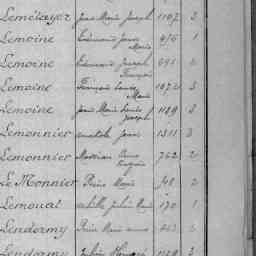 Lemétayer Jean Marie Joseph 1107 2
Lemoine Jean Marie 1
Lemoine Joseph François 2
Lemoine François Louis Marie 1072 3
Lemoine Jean Marie Louis Joseph 1189 3
Lemonnier Anatole Jean 1311 3
Lemonnier Mathurin François 762 2
Le Monnier Pierre Marie 48 2
Lemouat Achille Julien Marie 170 1
Lendormy Pierre Marie 2
Lendormy Julien 3